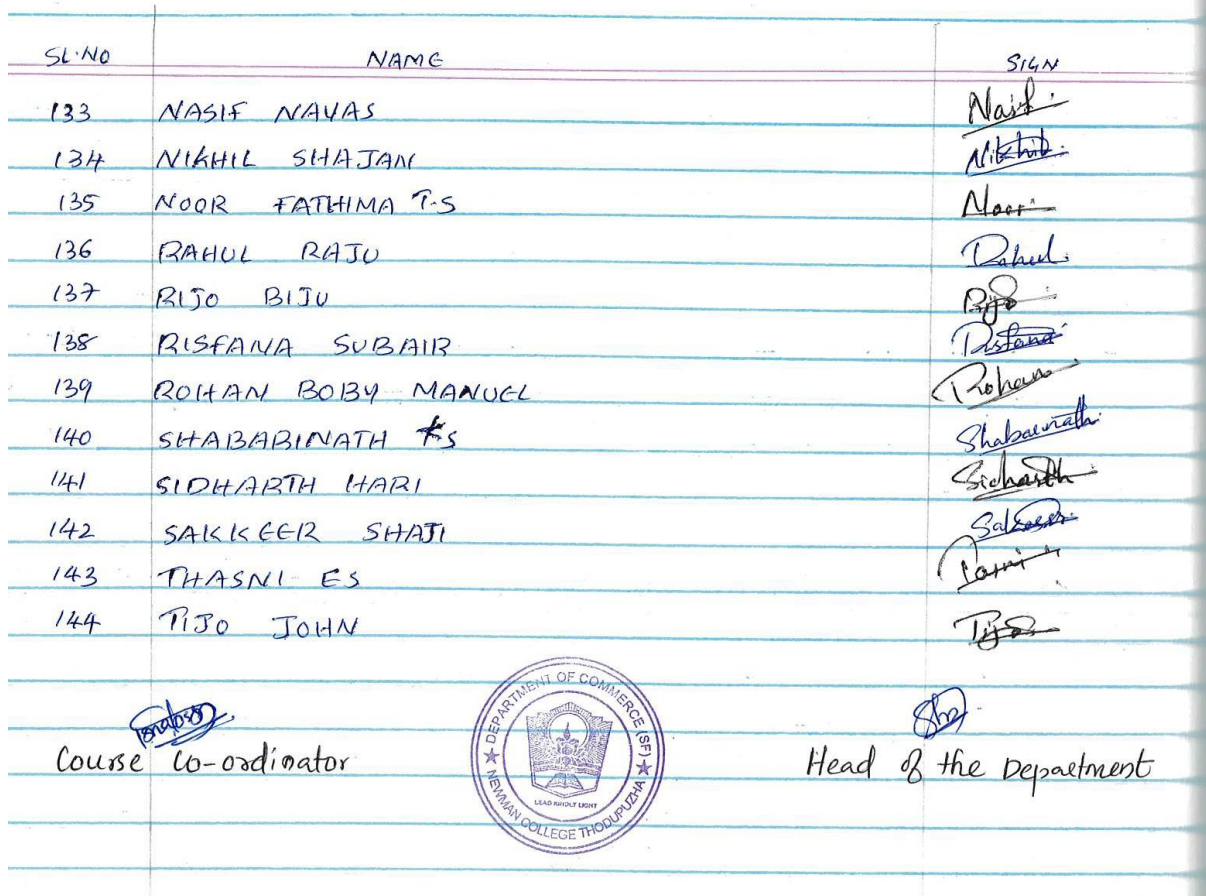 SL·NO NAME SIGN
133 NASIF NAVAS Nasif
134 NIKHIL SHAJAN Nikhil
135 NOOR FATHIMA T·S Noor
136 RAHUL RAJU Rahul
137 RIJO BIJU Rijo
138 RISFANA SUBAIR Risfana
139 ROHAN BOBY MANUEL Rohan
140 SHABABINATH KS
141 SIDHARTH HARI Sidharth
142 SAKKEER SHAJI
143 THASNI ES
144 TIJO JOHN Tijo
DEPARTMENT OF COMMERCE (SF)
LEAD KINDLY LIGHT
NEWMAN COLLEGE THODUPUZHA
Course Co-ordinator Head of the Department